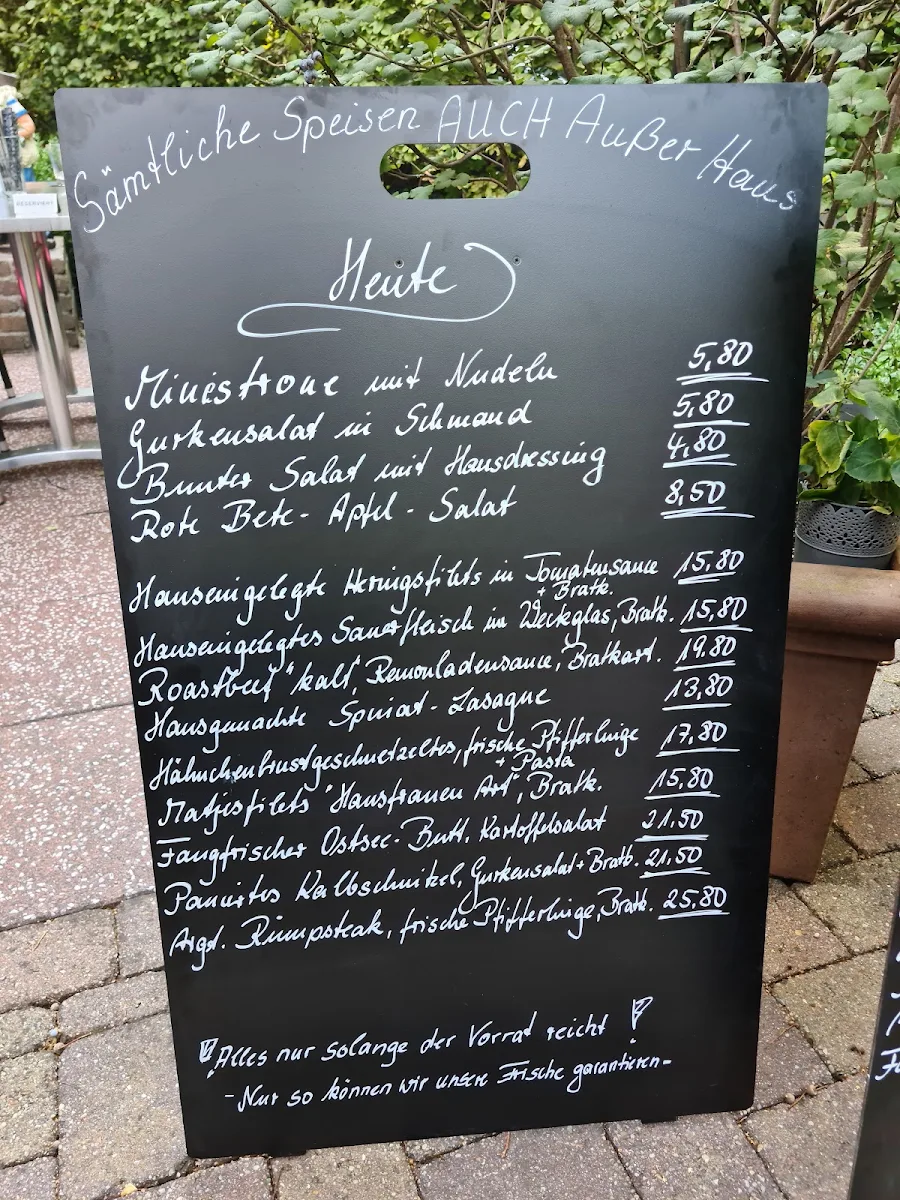 Sämtliche Speisen AUCH Außer Haus
Heute
Minestrone mit Nudeln 5,80
Gurkensalat in Schmand 5,80
Bunter Salat mit Hausdressing 4,80
Rote Bete - Apfel - Salat 8,50
Hauseingelegte Heringsfilets in Tomatensauce 15,80
+ Bratk.
Hauseingelegtes Sauerfleisch im Weckglas, Bratk. 15,80
Roastbeef "kalt", Remouladensauce, Bratkart. 19,80
Hausgemachte Spinat-Lasagne 13,80
Hähnchenbrustgeschnetzeltes, frische Pfifferlinge 17,80
+ Pasta
Matjesfilets "Hausfrauen Art", Bratk. 15,80
Fangfrischer Ostsee-Butt, Kartoffelsalat 21,50
Paniertes Kalbschnitzel, Gurkensalat + Bratk. 21,50
Argt. Rumpsteak, frische Pfifferlinge, Bratk. 25,80
! Alles nur solange der Vorrat reicht !
- Nur so können wir unsere Frische garantieren -
RESERVIERT